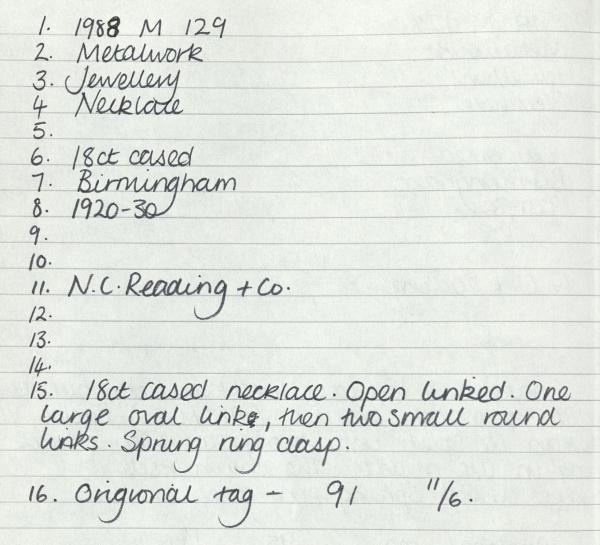 1. 1988 M 129
2. Metalwork
3. Jewellery
4 Necklace
5.
6. 18ct cased
7. Birmingham
8. 1920-30
9.
10.
11. N.C. Reading + Co.
12.
13.
14.
15. 18ct cased necklace. Open linked. One
large oval link, then two small round
links. Sprung ring clasp.
16. Origional tag - 91 11/6.